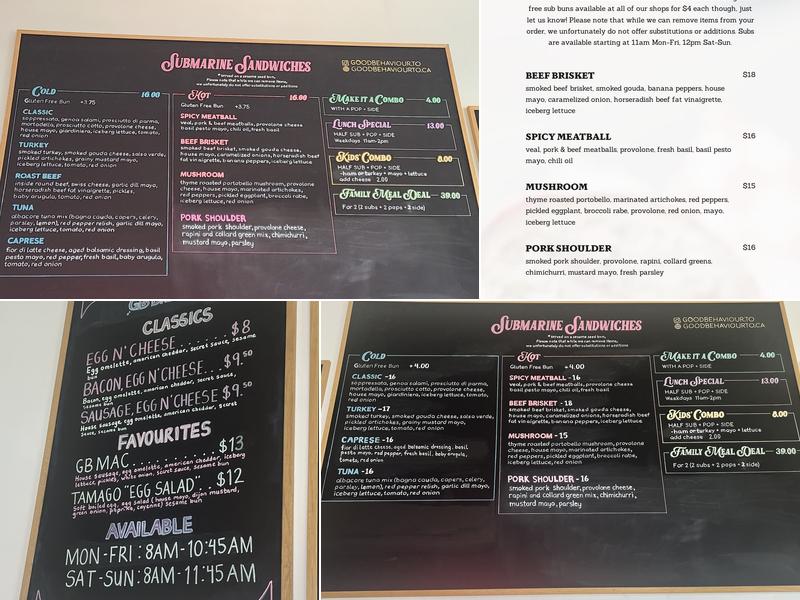 SUBMARINE SANDWICHES
*Served on a sesame seed bun.
Please note that while we can remove items,
we unfortunately do not offer substitutions or additions
GOODBEHAVIOUR.TO
GOODBEHAVIOURTO.CA
COLD 16.00
Gluten Free Bun +3.75
CLASSIC
soppressata, genoa salami, prosciutto di parma,
mortadella, prosciutto cotto, provolone cheese,
house mayo, giardiniera, iceberg lettuce, tomato,
red onion
TURKEY
smoked turkey, smoked gouda cheese, salsa verde,
pickled artichokes, grainy mustard mayo,
iceberg lettuce, tomato, red onion
ROAST BEEF
inside round beef, swiss cheese, garlic dill mayo,
horseradish beef fat vinaigrette, pickles,
baby arugula, tomato, red onion
TUNA
albacore tuna mix (bagna cauda, capers, celery,
parsley, lemon), red pepper relish, garlic dill mayo,
iceberg lettuce, tomato, red onion
CAPRESE
fior di latte cheese, aged balsamic dressing, basil
pesto mayo, red pepper, fresh basil, baby arugula,
tomato, red onion
HOT 16.00
Gluten Free Bun +3.75
SPICY MEATBALL
veal, pork & beef meatballs, provolone cheese
basil pesto mayo, chili oil, fresh basil
BEEF BRISKET
smoked beef brisket, smoked gouda cheese,
house mayo, caramelized onions, horseradish beef
fat vinaigrette, banana peppers, iceberg lettuce
MUSHROOM
thyme roasted portobello mushroom, provolone
cheese, house mayo, marinated artichokes,
red peppers, pickled eggplant, broccoli rabe,
iceberg lettuce, tomato, red onion
PORK SHOULDER
smoked pork shoulder, provolone cheese,
rapini and collard green mix, chimichurri,
mustard mayo, parsley
MAKE IT A COMBO 4.00
WITH A POP + SIDE
LUNCH SPECIAL 13.00
HALF SUB + POP + SIDE
Weekdays 11am-2pm
KIDS' COMBO 8.00
HALF SUB + POP + SIDE
-ham or turkey + mayo + lettuce
add cheese 2.00
FAMILY MEAL DEAL 39.00
For 2 (2 subs + 2 pops + 2 side)
free sub buns available at all of our shops for $4 each though, just
let us know! Please note that while we can remove items from your
order, we unfortunately do not offer substitutions or additions. Subs
are available starting at 11am Mon-Fri, 12pm Sat-Sun.
BEEF BRISKET $18
smoked beef brisket, smoked gouda, banana peppers, house
mayo, caramelized onion, horseradish beef fat vinaigrette,
iceberg lettuce
SPICY MEATBALL $16
veal, pork & beef meatballs, provolone, fresh basil, basil pesto
mayo, chili oil
MUSHROOM $15
thyme roasted portobello, marinated artichokes, red peppers,
pickled eggplant, broccoli rabe, provolone, red onion, mayo,
iceberg lettuce
PORK SHOULDER $16
smoked pork shoulder, provolone, rapini, collard greens,
chimichurri, mustard mayo, fresh parsley
CLASSICS
EGG N' CHEESE......$8
Egg omelette, american cheddar, secret sauce, sesame
bun
BACON, EGG N' CHEESE..$9.50
Bacon, egg omelette, american cheddar, secret sauce,
sesame bun
SAUSAGE, EGG N' CHEESE $9.50
House sausage, egg omelette, american cheddar, secret
sauce, sesame bun
FAVOURITES
GB MAC..........$13
House sausage, egg omelette, american cheddar, iceberg
lettuce, pickles, white onion, secret sauce, sesame bun
TAMAGO "EGG SALAD"..$12
Soft boiled egg, egg salad (house mayo, dijon mustard,
green onion, paprika, cayenne) sesame bun
AVAILABLE
MON-FRI: 8AM-10:45AM
SAT-SUN: 8AM-11:45AM
SUBMARINE SANDWICHES
*Served on a sesame seed bun.
Please note that while we can remove items,
we unfortunately do not offer substitutions or additions
GOODBEHAVIOUR.TO
GOODBEHAVIOURTO.CA
COLD
Gluten Free Bun +4.00
CLASSIC -16
soppressata, genoa salami, prosciutto di parma,
mortadella, prosciutto cotto, provolone cheese,
house mayo, giardiniera, iceberg lettuce, tomato,
red onion
TURKEY -17
smoked turkey, smoked gouda cheese, salsa verde,
pickled artichokes, grainy mustard mayo,
iceberg lettuce, tomato, red onion
CAPRESE -16
fior di latte cheese, aged balsamic dressing, basil
pesto mayo, red pepper, fresh basil, baby arugula,
tomato, red onion
TUNA -16
albacore tuna mix (bagna cauda, capers, celery,
parsley, lemon), red pepper relish, garlic dill mayo,
iceberg lettuce, tomato, red onion
HOT
Gluten Free Bun +4.00
SPICY MEATBALL -16
veal, pork & beef meatballs, provolone cheese
basil pesto mayo, chili oil, fresh basil
BEEF BRISKET -18
smoked beef brisket, smoked gouda cheese,
house mayo, caramelized onions, horseradish beef
fat vinaigrette, banana peppers, iceberg lettuce
MUSHROOM -15
thyme roasted portobello mushroom, provolone
cheese, house mayo, marinated artichokes,
red peppers, pickled eggplant, broccoli rabe,
iceberg lettuce, tomato, red onion
PORK SHOULDER -16
smoked pork shoulder, provolone cheese,
rapini and collard green mix, chimichurri,
mustard mayo, parsley
MAKE IT A COMBO 4.00
WITH A POP + SIDE
LUNCH SPECIAL 13.00
HALF SUB + POP + SIDE
Weekdays 11am-2pm
KIDS' COMBO 8.00
HALF SUB + POP + SIDE
-ham or turkey + mayo + lettuce
add cheese 2.00
FAMILY MEAL DEAL 39.00
For 2 (2 subs + 2 pops + 2 side)